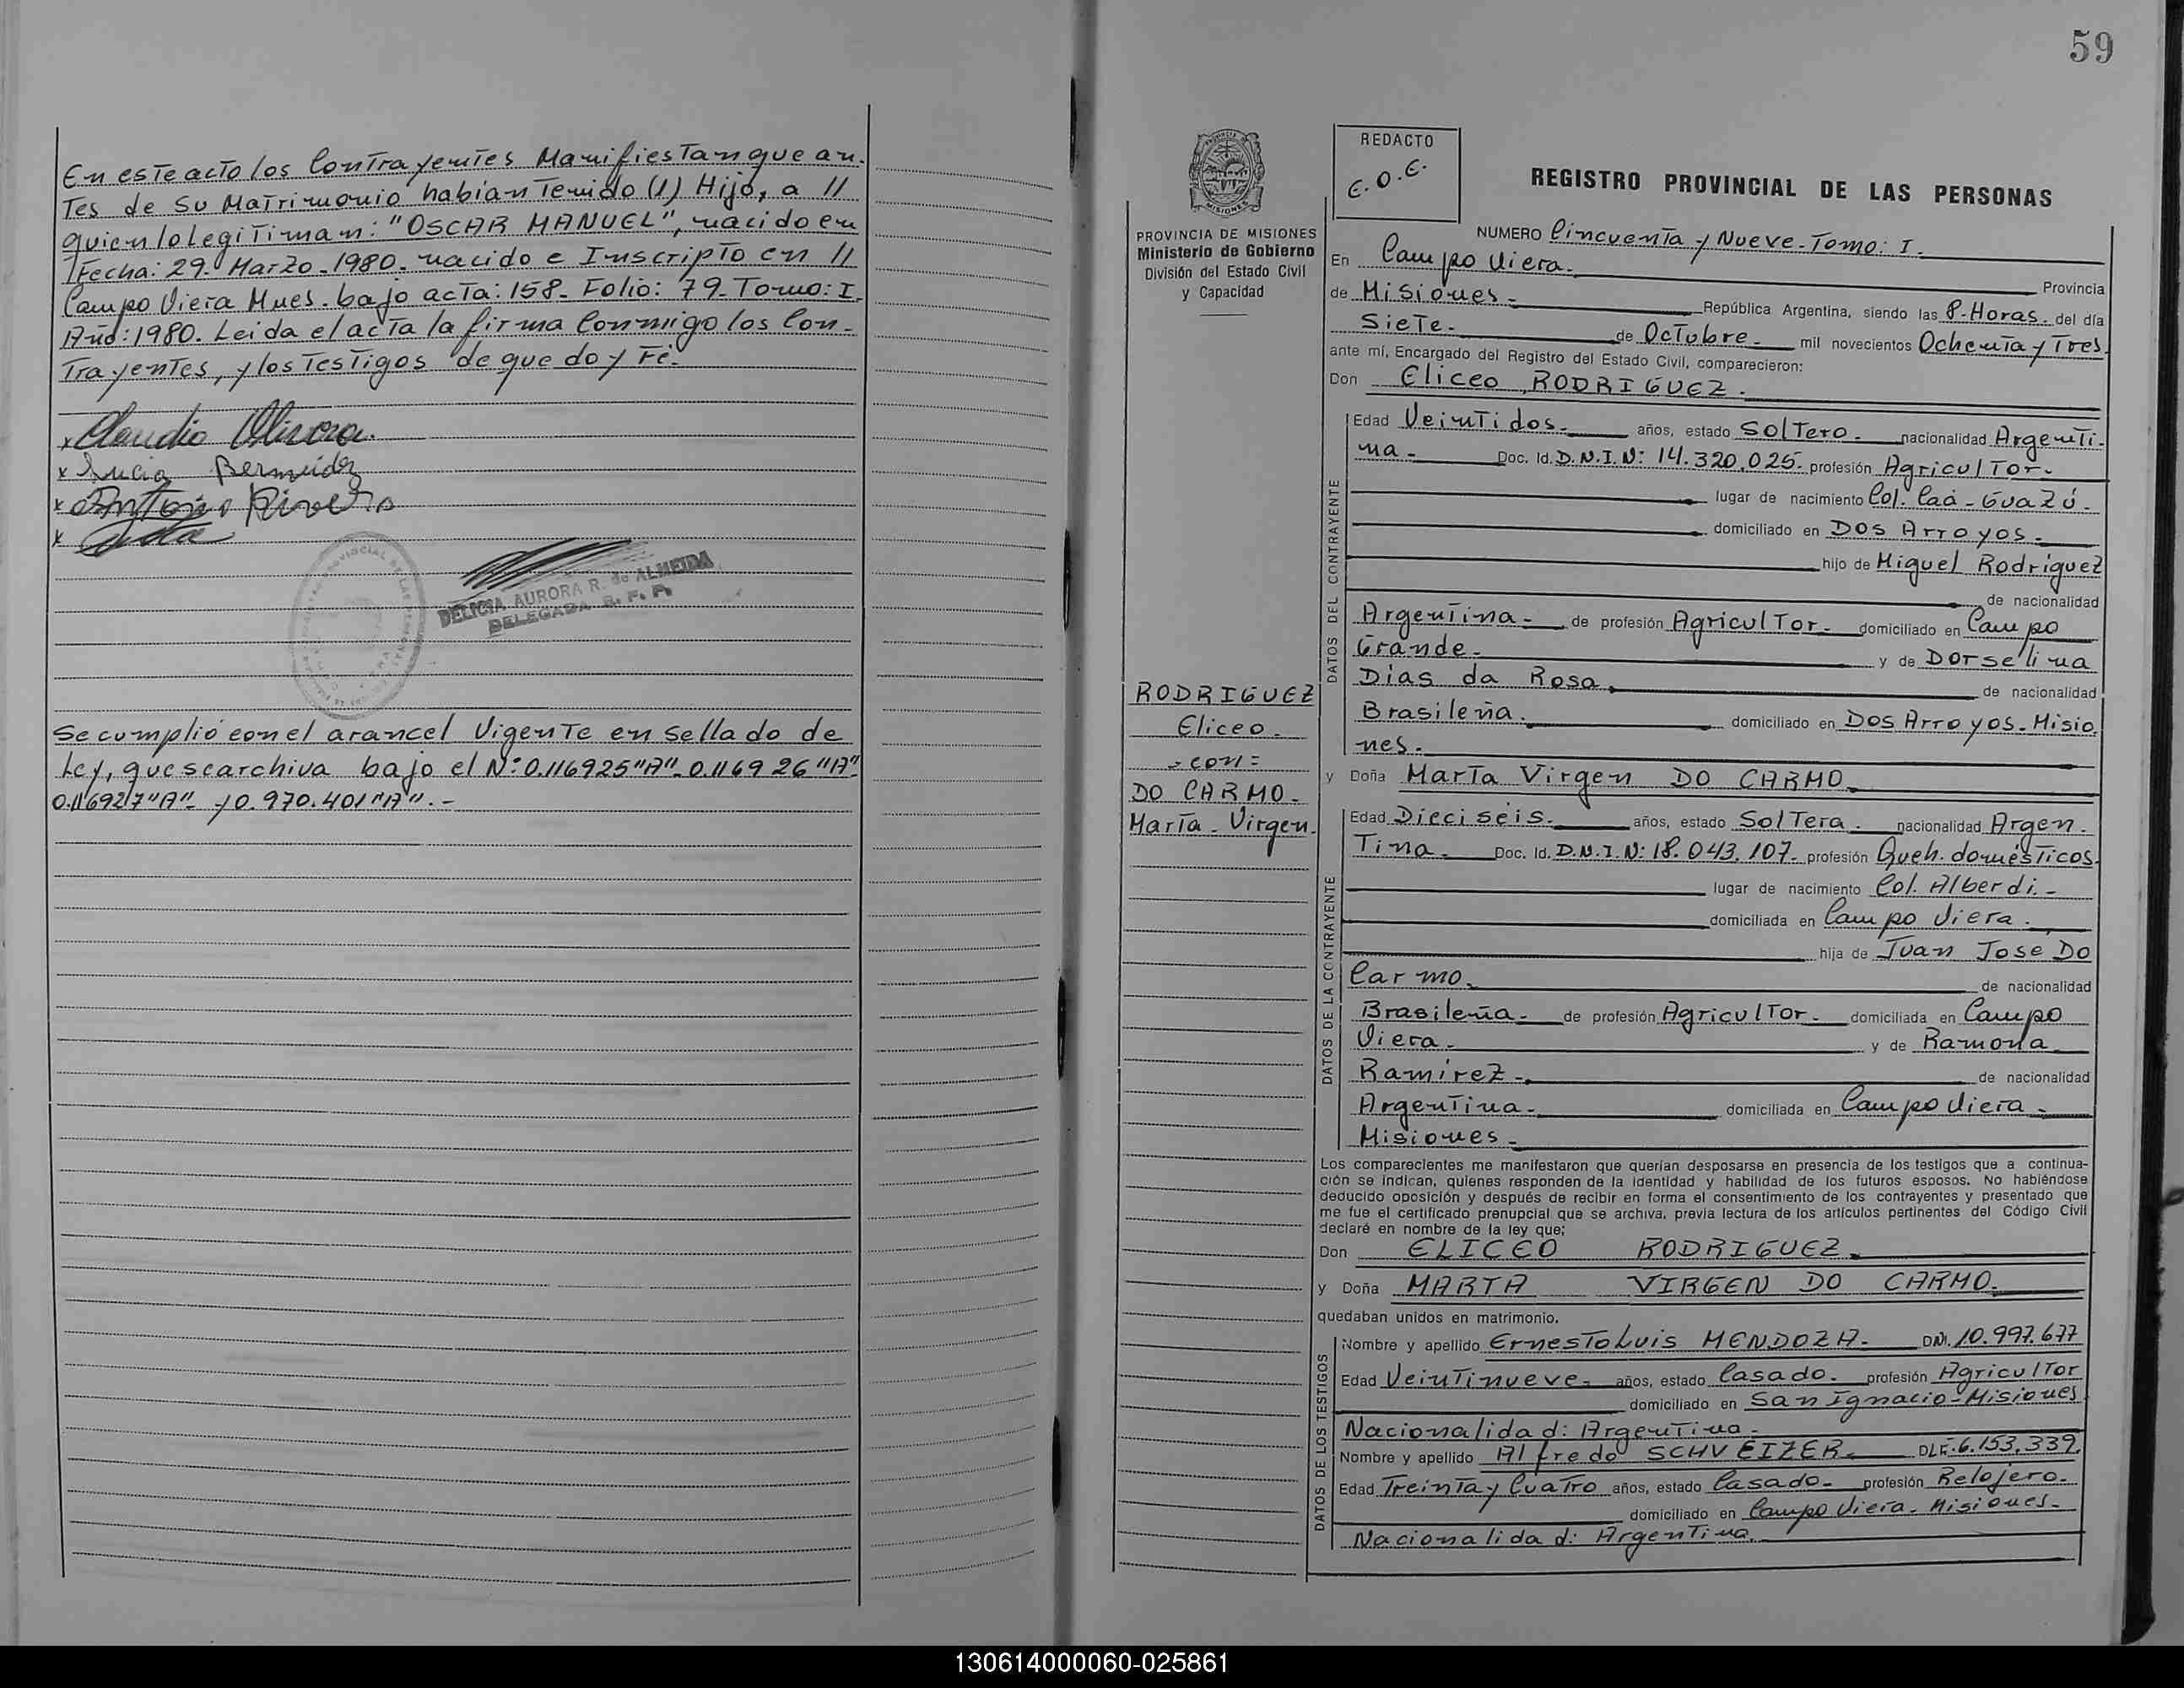 En este acto los Contrayentes Manifiestan que an-
tes de su Matrimonio habian Tenido (1) Hijo, a //
quien lo legitiman: "OSCAR MANUEL", nacido en
Fecha: 29- Marzo-1980. nacido e Inscripto en //
Campo Viera Mnes. bajo acta: 158- Folio: 79- Tomo: I.
Año: 1980. Leida el acta la firma Conmigo los Con-
trayentes, y los Testigos de que doy Fé.-
x Claudio Olivera.
x Lucia Bermudez
x Antonio Rivero
x
DELICIA AURORA R. de ALMEIDA
DELEGADA R. P. P.
Se cumplió con el arancel Vigente en sellado de
Ley, que se archiva bajo el Nº: 0.116925 "A"- 0.116926 "A"-
0.116927 "A"- y 0.970.401 "A".-
59
PROVINCIA DE MISIONES
Ministerio de Gobierno
División del Estado Civil
y Capacidad
RODRIGUEZ
Eliceo.
-con=
DO CARMO.
Marta-Virgen.
REDACTO
E.O.E.
REGISTRO PROVINCIAL DE LAS PERSONAS
NUMERO Cincuenta y Nueve- Tomo: I.
En Campo Viera.- Provincia
de Misiones- República Argentina, siendo las 8-Horas- del día
Siete- de Octubre- mil novecientos Ochenta y Tres
ante mí, Encargado del Registro del Estado Civil, comparecieron:
Don Eliceo RODRIGUEZ.
DATOS DEL CONTRAYENTE
Edad Veintidos- años, estado Soltero- nacionalidad Argenti-
na- Doc. Id. D.N.I.N: 14.320.025- profesión Agricultor-
lugar de nacimiento Col. Caá-Guazú-
domiciliado en Dos Arroyos-
hijo de Miguel Rodriguez
de nacionalidad
Argentina- de profesión Agricultor- domiciliado en Campo
Grande- y de Dorselina
Dias da Rosa de nacionalidad
Brasileña. domiciliado en Dos Arroyos-Misio
nes-
y Doña Marta Virgen DO CARMO.
DATOS DE LA CONTRAYENTE
Edad Dieciseis- años, estado Soltera- nacionalidad Argen-
Tina- Doc. Id. D.N.I.N: 18.043.107- profesión Queh. domésticos.
lugar de nacimiento Col. Alberdi.-
domiciliada en Campo Viera.
hija de Juan Jose Do
Carmo. de nacionalidad
Brasileña- de profesión Agricultor- domiciliada en Campo
Viera- y de Ramona
Ramirez- de nacionalidad
Argentina- domiciliada en Campo Viera-
Misiones-
Los comparecientes me manifestaron que querían desposarse en presencia de los testigos que a continua-
ción se indican, quienes responden de la identidad y habilidad de los futuros esposos. No habiéndose
deducido oposición y después de recibir en forma el consentimiento de los contrayentes y presentado que
me fue el certificado prenupcial que se archiva, previa lectura de los artículos pertinentes del Código Civil
declaré en nombre de la ley que;
Don ELICEO RODRIGUEZ.
y Doña MARTA VIRGEN DO CARMO.
quedaban unidos en matrimonio.
DATOS DE LOS TESTIGOS
Nombre y apellido Ernesto Luis MENDOZA- DNI. 10.997.677
Edad Veintinueve- años, estado Casado- profesión Agricultor
domiciliado en San Ignacio-Misiones
Nacionalidad: Argentina-
Nombre y apellido Alfredo SCHVEIZER- DLE. 6.153.339
Edad Treinta y Cuatro años, estado Casado- profesión Relojero-
domiciliado en Campo Viera-Misiones-
Nacionalidad: Argentina
130614000060-025861